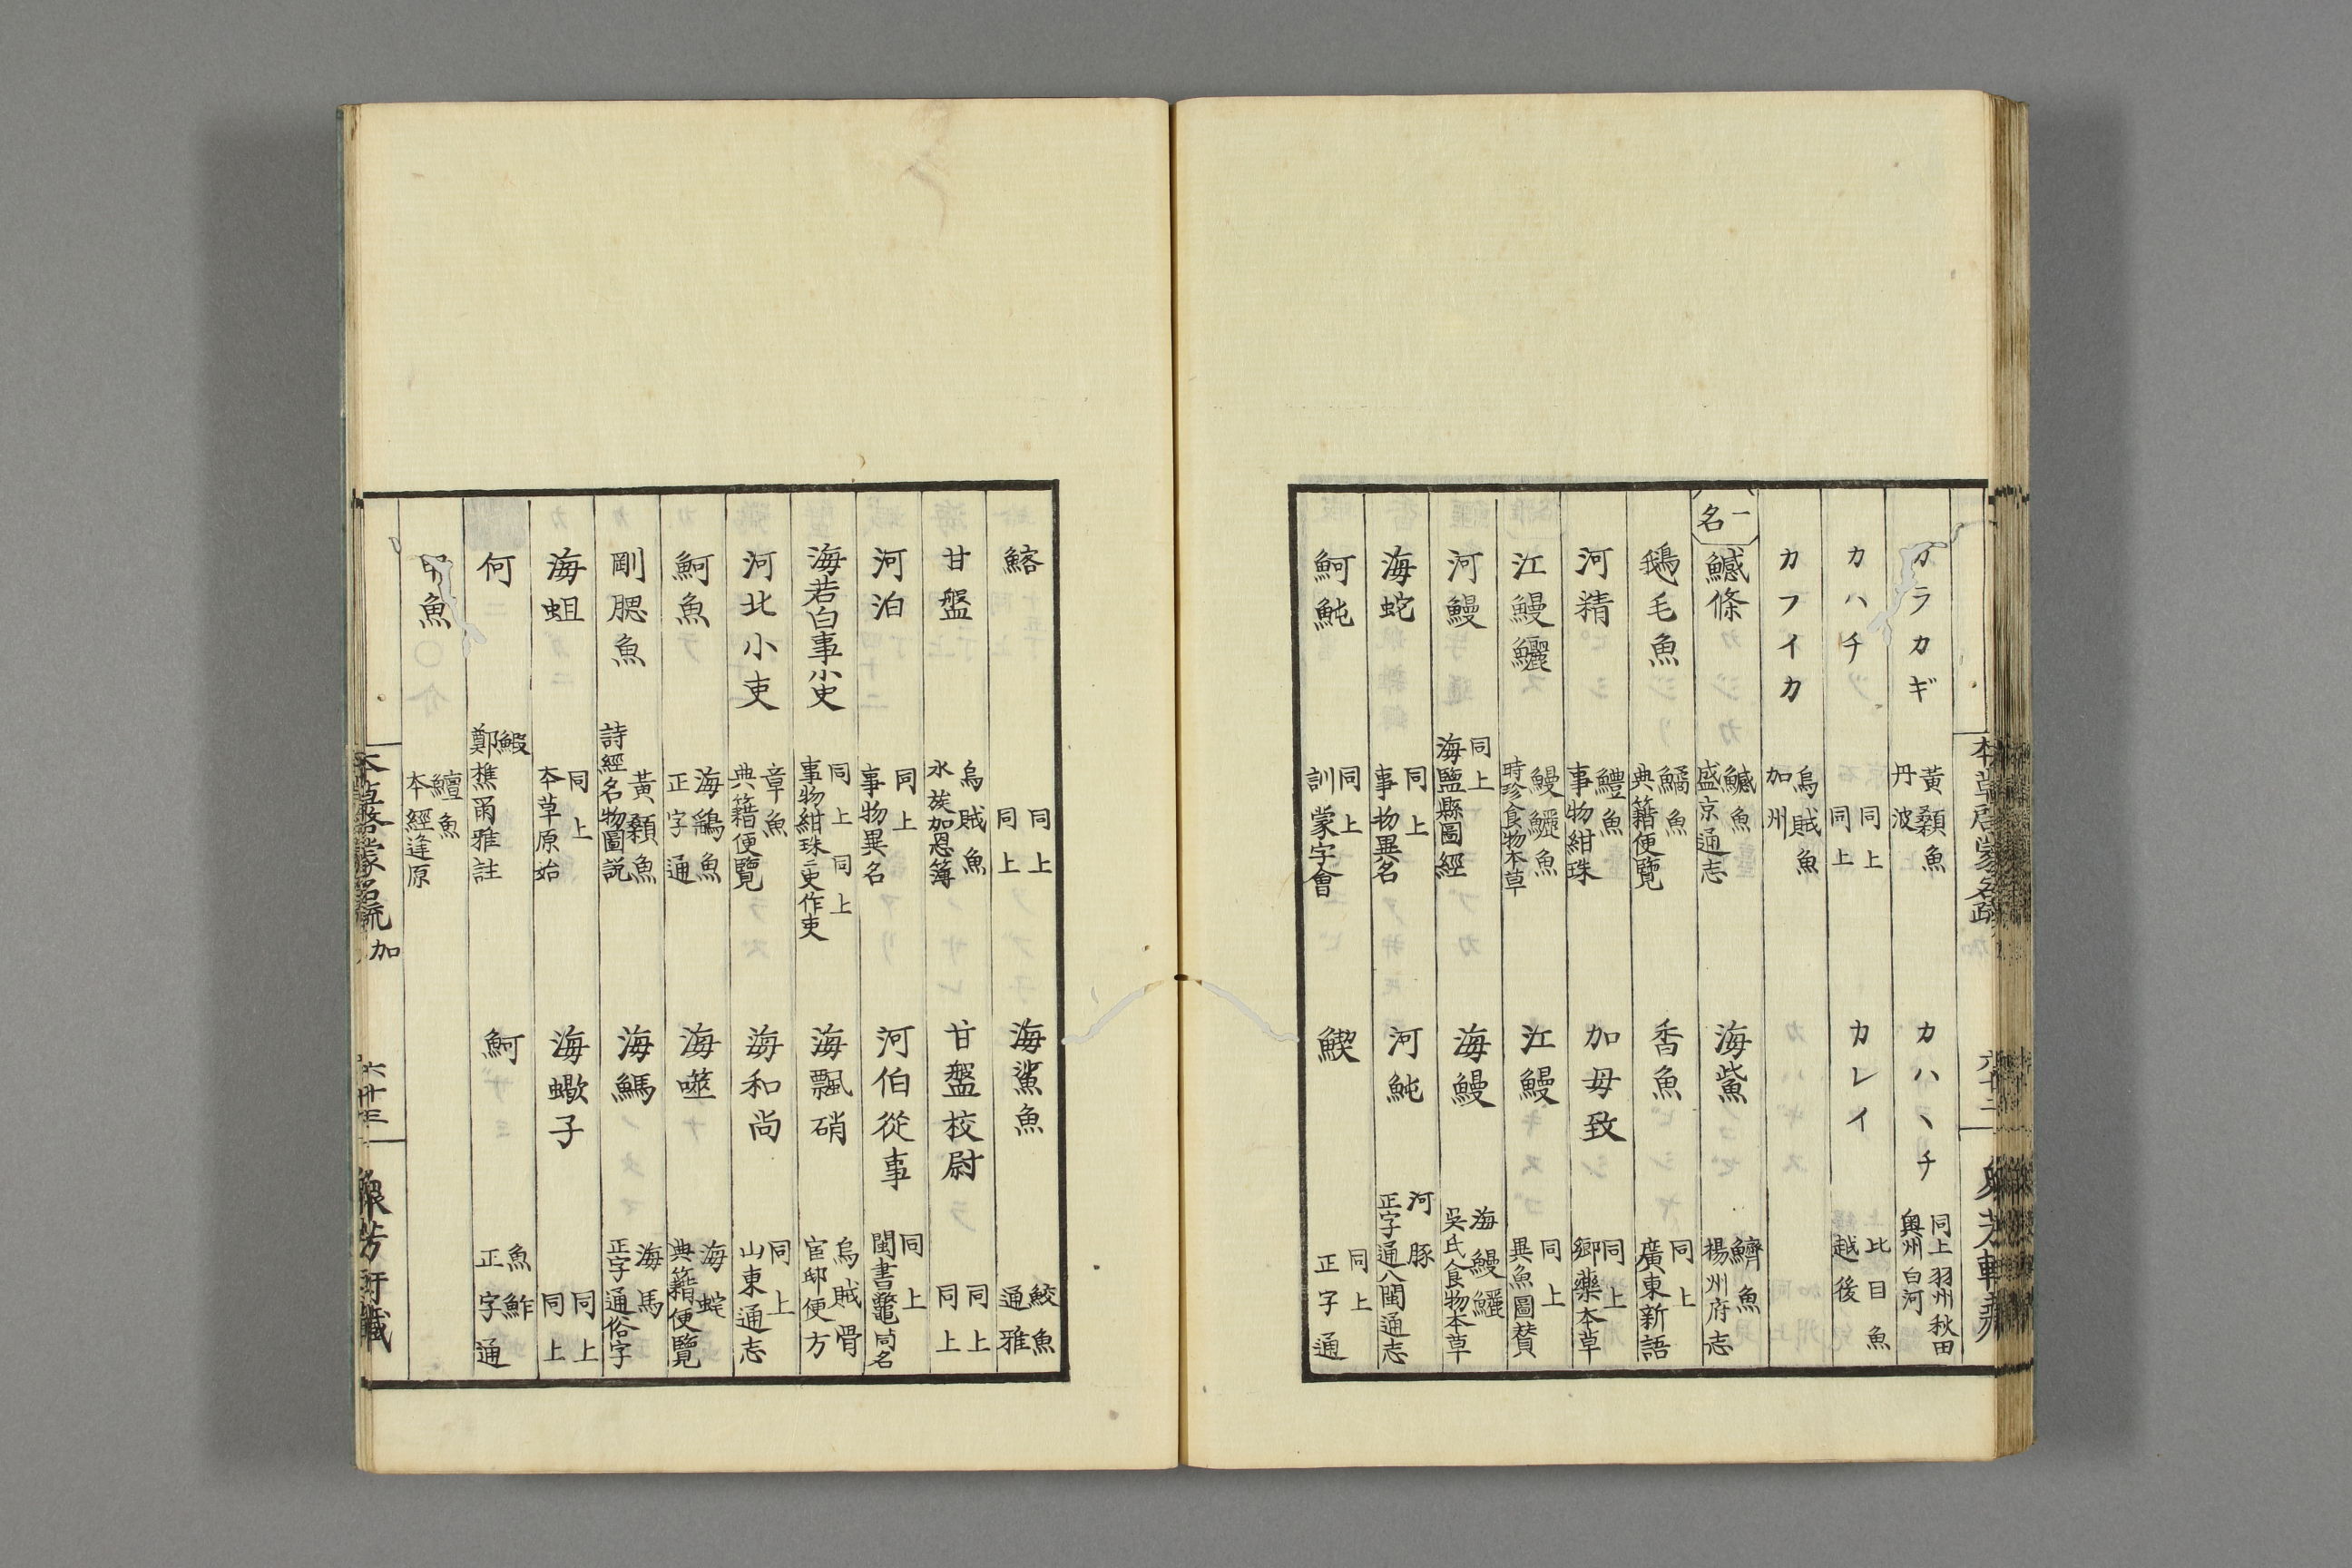 カラカギ 黃顙魚 丹波
カハヽチ 同上 羽州秋田 奥州白河
カハチ 同上 同上
カレイ 比目魚 越後
カフイカ 烏賊魚 加州
一名
鱤條 鱤魚 盛京通志
海鮆 鱭魚 楊州府志
鵝毛魚 鱊魚 典籍便覽
香魚 同上 廣東新語
河精 鱧魚 事物紺珠
加毋致 同上 鄉藥本草
江鰻鱺 鰻鱺魚 時珍食物本草
江鰻 同上 異魚圖賛
河鰻 同上 海鹽縣圖經
海鰻 海鰻鱺 吳氏食物本草
海蛇 同上 事物異名
河魨 河豚 正字通 八閩通志
魺魨 同上 訓蒙字會
鯸 同上 正字通
本草啓蒙名疏 六十二
鮥 同上 同上
海鯊魚 鮫魚 通雅
甘盤 烏賊魚 水族加恩簿
甘盤校尉 同上 同上
河泊 同上 事物異名
河伯從事 同上 閩書 鼈同名
海若白事小吏 同上 同上 事物紺珠 吏作吏
海飄硝 烏賊骨 宦邸便方
河北小吏 章魚 典籍便覽
海和尚 同上 山東通志
魺魚 海鷂魚 正字通
海噬 海䖳 典籍便覽
剛腮魚 黃顙魚 詩經名物圖説
海鰢 海馬 正字通俗字
海蛆 同上 本草原始
海蠍子 同上 同上
何 鰕 鄭樵爾雅註
魺 魚鮓 正字通
魚 鱣魚 本經逢原
本草啓蒙名疏 加 六十三 衆芳軒藏